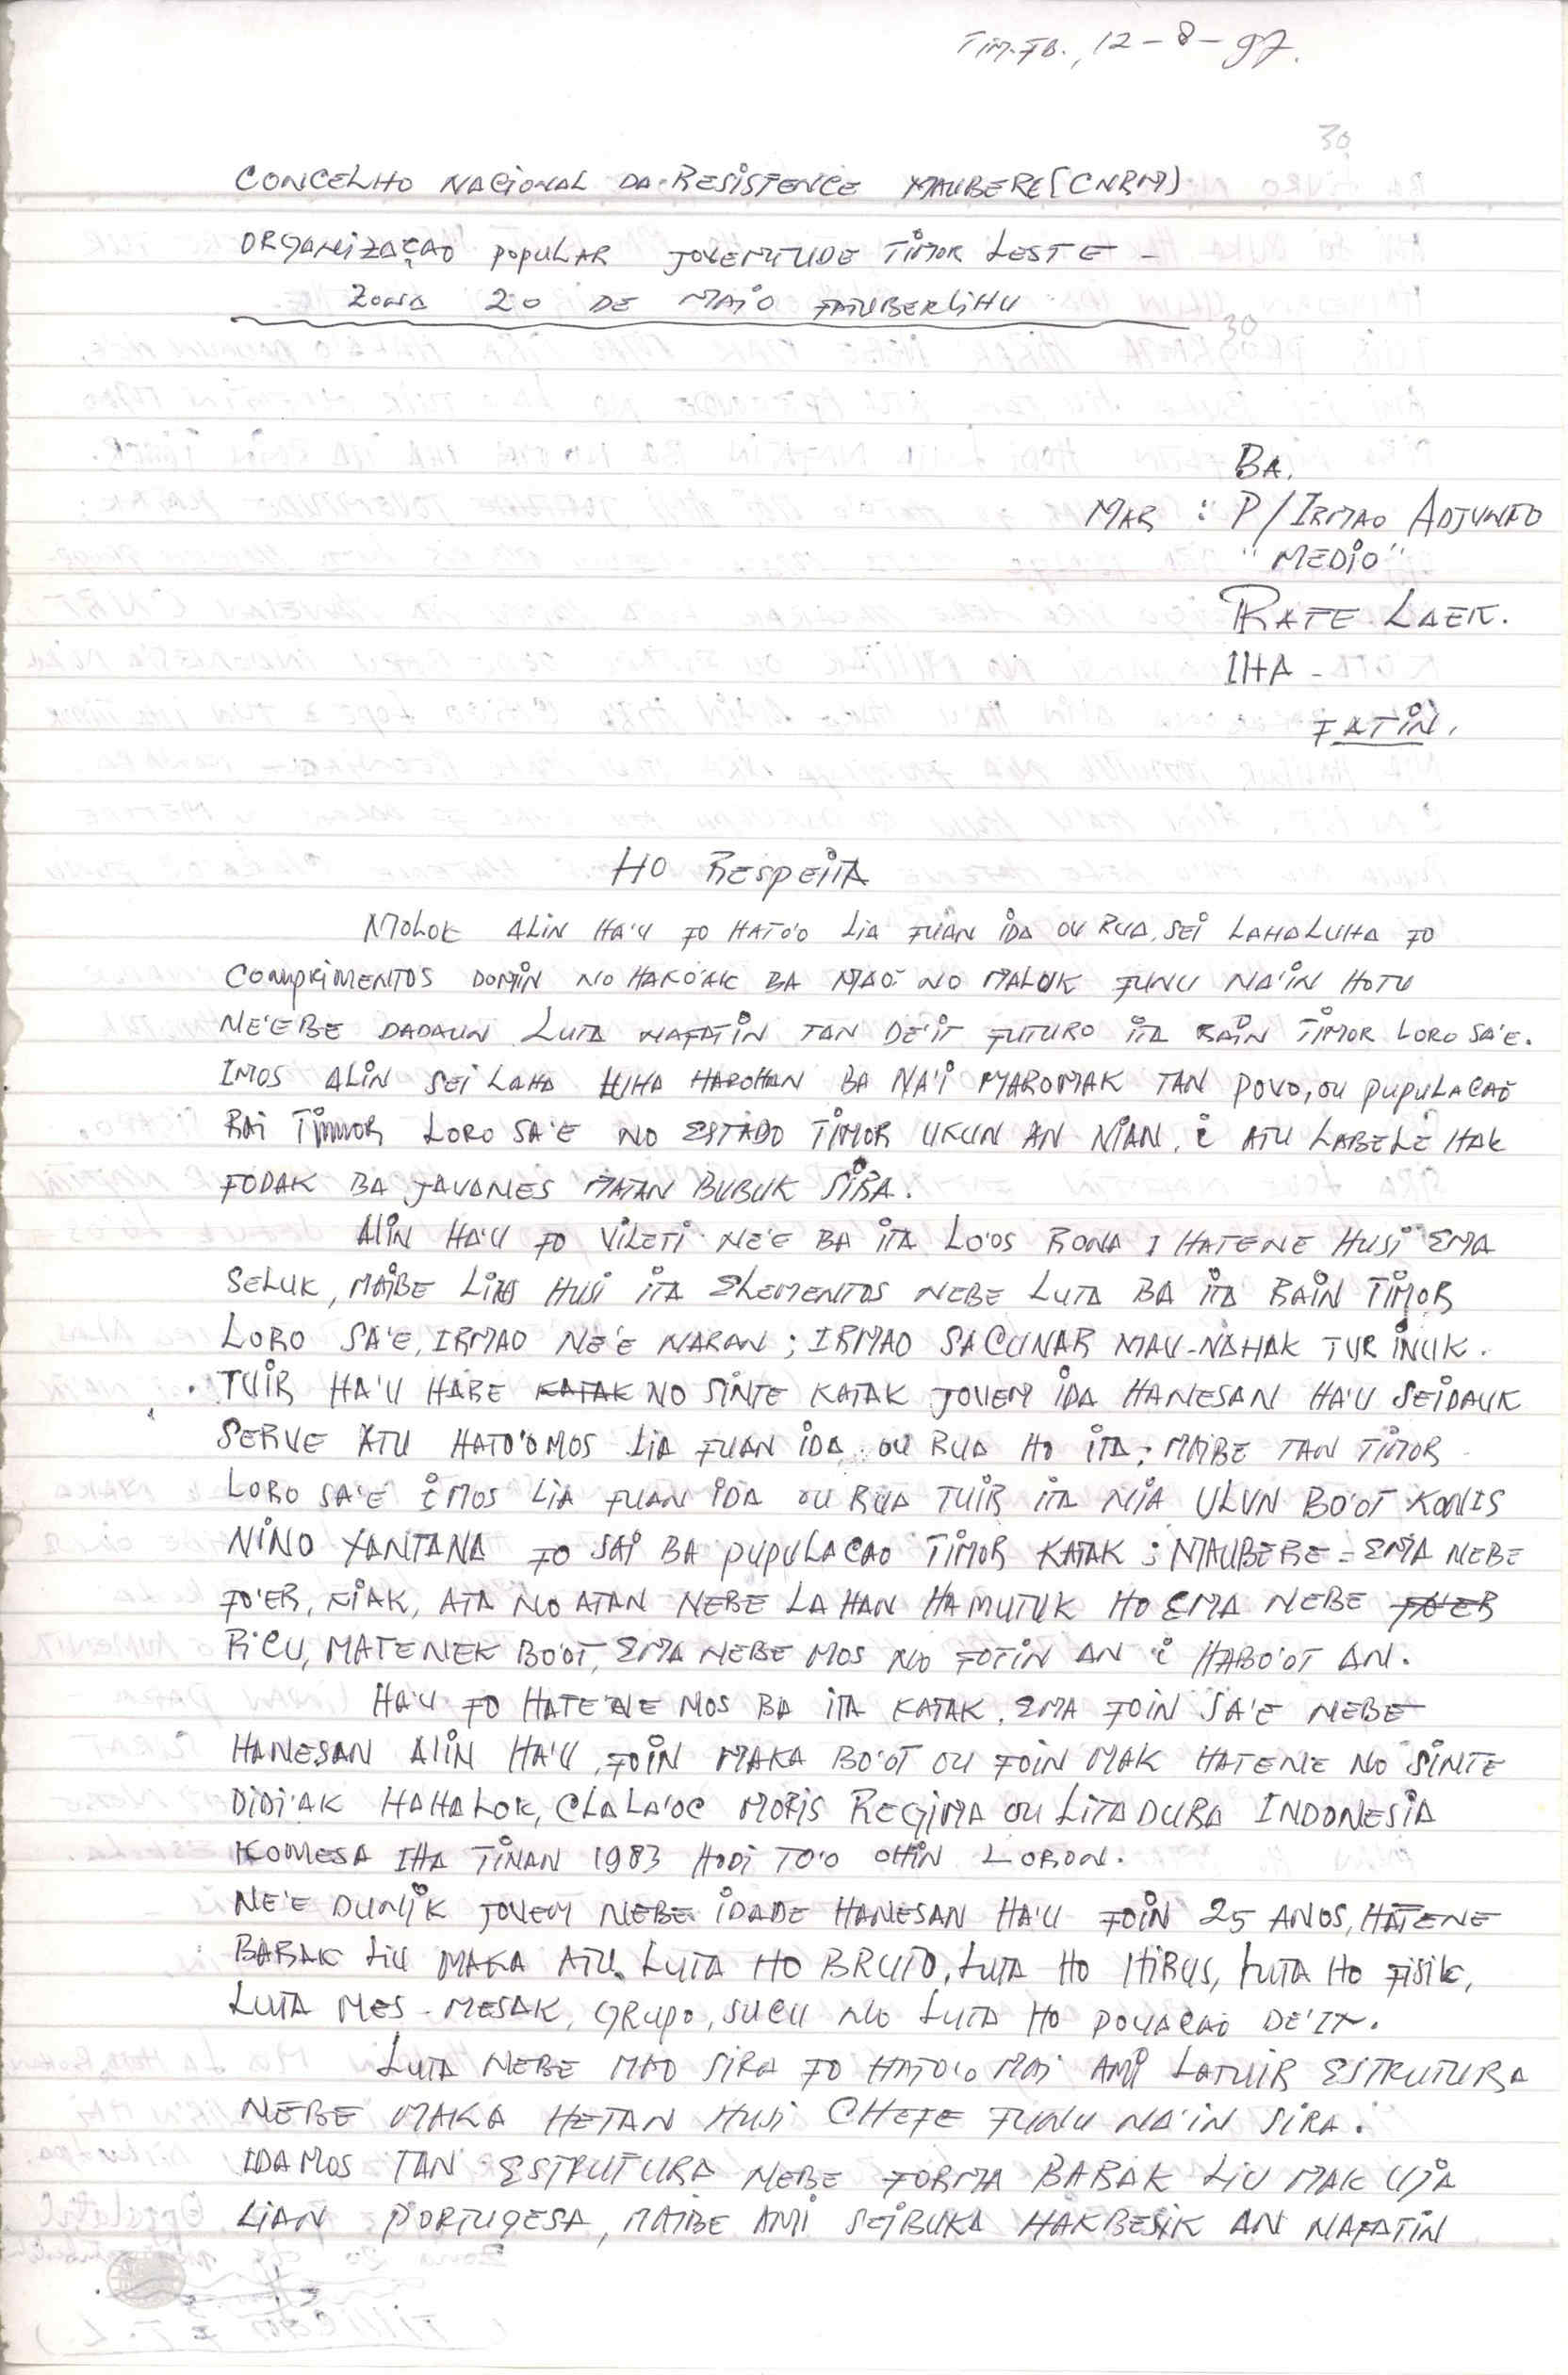 TIM.FB., 12-8-97.
30
CONCELHO NACIONAL DA RESISTENCE MAUBERE (CNRM)
ORGANIZAÇAO POPULAR JOVENTUDE TIMOR LESTE -
ZONA 20 DE MAIO FATUBERLIHU
30
BA.
MAR : P/IRMAO ADJUNTO
"MEDIO"
RATE LAEK.
IHA -
FATIN.
HO RESPEITA
MOLOK ALIN HA'U FO HATO'O LIA FUAN IDA OU RUA, SEI LAHALUHA FO
COMPRIMENTOS DOMIN NO HAKO'AK BA MAO NO MALUK FUNU NA'IN HOTU
NE'EBE DADAUN LUTA NAFATIN TAN DE'IT FUTURO ITA RAIN TIMOR LORO SA'E.
IMOS ALIN SEI LAHA LUHA HAROHAN BA NA'I MAROMAK TAN POVO, OU PUPULACAO
RAI TIMOR LORO SA'E NO ESTADO TIMOR UKUN AN NIAN, I ATU LABELE HAK
FODAK BA JAVANES MATAN BUBUK SIRA.
ALIN HA'U FO VILETI NE'E BA ITA LO'OS RONA I HATENE HUSI EMA
SELUK, MAIBE LIHUSI ITA ELEMENTOS NEBE LUTA BA ITA RAIN TIMOR
LORO SA'E, IRMAO NE'E NARAN ; IRMAO SACUNAR MAU-NAHAK TUR INUK.
TUIR HA'U HARE KATAK NO SINTE KATAK JOVEM IDA HANESAN HA'U SEIDAUK
SERVE ATU HATO'O MOS LIA FUAN IDA OU RUA HO ITA; MAIBE TAN TIMOR
LORO SA'E I MOS LIA FUAN IDA OU RUA TUIR ITA NIA ULUN BO'OT KONIS
NINO XANTANA FO SAI BA PUPULACAO TIMOR KATAK : MAUBERE = EMA NEBE
FO'ER, KIAK, ATA NO ATAN NEBE LA HAN HAMUTUK HO EMA NEBE FO'ER
RICU, MATENEK BO'OT, EMA NEBE MOS NO FOTIN AN I HABO'OT AN.
HA'U FO HATENE MOS BA ITA KATAK, EMA FOIN SA'E NEBE
HANESAN ALIN HA'U, FOIN MAKA BO'OT OU FOIN MAK HATENE NO SINTE
DIDI'AK HAHALOK, CLALA'OC MORIS REGIMA OU LITADURA INDONESIA
KOMESA IHA TINAN 1983 HODI TO'O OHIN LORON.
NE'E DUNIK JOVEM NEBE IDADE HANESAN HA'U FOIN 25 ANOS, HATENE
BARAK LIU MAKA ATU LUTA HO BRUTO, LUTA HO HIRUS, LUTA HO FISIK,
LUTA MES-MESAK, GRUPO, SUCU NO LUTA HO POVACAO DE'IT.
LUTA NEBE MAO SIRA FO HATO'O MAI AMI LATUIR ESTRUTURA
NEBE MAKA HETAN HUSI CHEFE FUNU NA'IN SIRA.
IDA MOS TAN ESTRUTURA NEBE FORMA BARAK LIU MAK UJA
LIAN PORTUGESA, MAIBE AMI SEI BUKA HAKBESIK AN NAFATIN